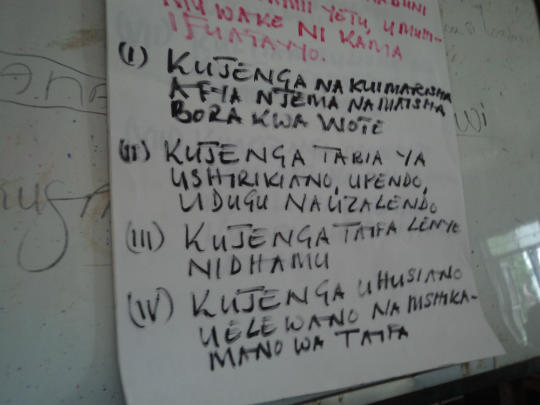 YETU, UMUHI-
MU WAKE NI KAMA
IFUATAVYO.
(I) KUJENGA NA KUIMARISHA
AFYA NJEMA NA MAISHA
BORA KWA WOTE
(II) KUJENGA TABIA YA
USHIRIKIANO, UPENDO,
UDUGU NA UZALENDO
(III) KUJENGA TAIFA LENYE
NIDHAMU
(IV) KUJENGA UHUSIANO
UELEWANO NA MSHIKA-
MANO WA TAIFA